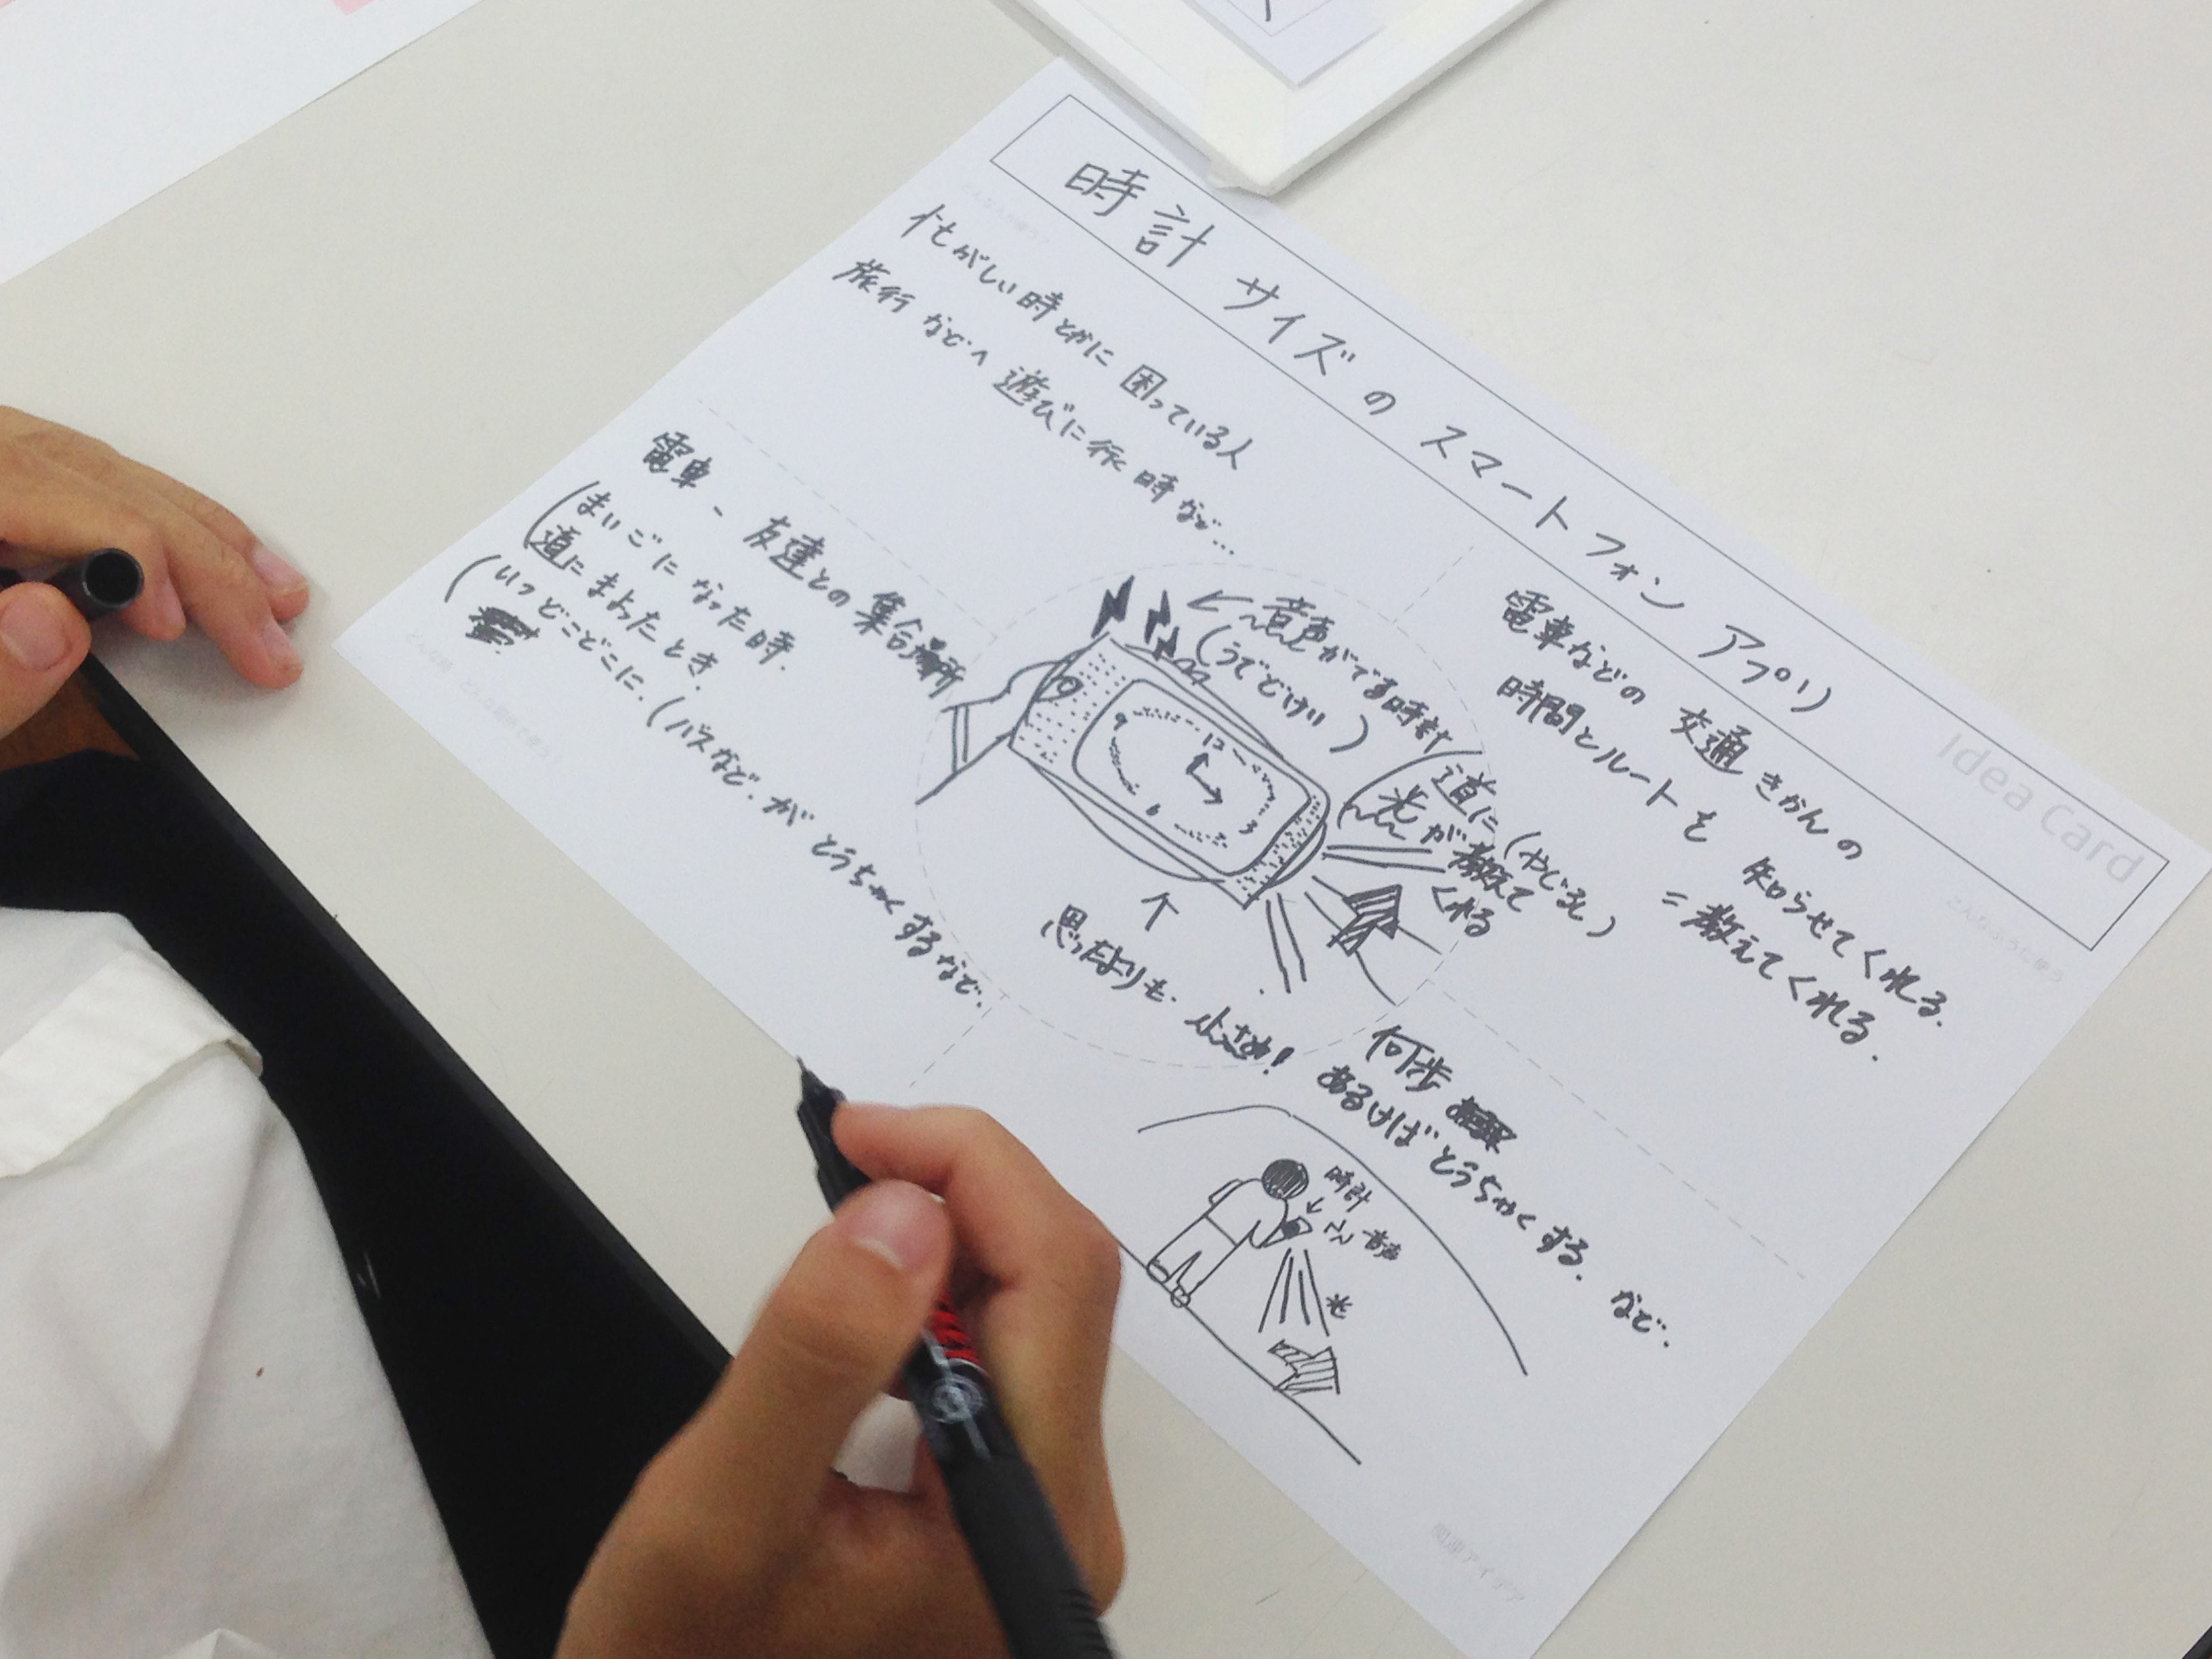 時計サイズのスマートフォンアプリ
Idea Card
どんな人が使う?
忙がしい時とかに困っている人
旅行などへ遊びに行時など…
こんなふうに使う
電車などの交通きかんの
時間とルートを知らせてくれる.
=教えてくれる.
電車-友達との集合場所
(まいごになった時.
道にまよったとき.
(いつどこどこに.(バスなど.がとうちゃくするなど.
どんな時、どんな場所で使う?
←音声がでる時もｹ
(うでどけい)
9 12 3 6
道に(やじるし)
光が教えて
くれる
↑
思ったよりも.小さめ!
何歩
あるけばとうちゃくする.など.
時計
↓
音声
光
関連アイデア